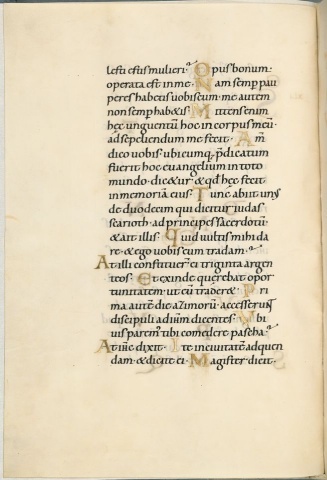 lesti estis mulieri· Opus bonum
operata est in me· Nam semp̄ pau
peres habetis uobiscum· me autem
non semp habetis· Mittens enim
hęc unguentū hoc in corpus meū·
ad sepeliendum me fecit· Am̄
dico uobis· ubicumq; p̄dicatum
fuerit hoc euangelium in toto
mundo· dicetur & qđ hęc fecit
in memoriā eius· Tunc abiit unus
de duodecim qui dicitur iudas
scarioth· ad principes sacerdotū·
& ait illis· Quid uultis mihi da
re· & ego uobis eum tradam·
At illi constituer̄ ei triginta argen
teos· Et exinde querebat opor
tunitatem· ut eū traderet· Pri
ma autē die azimorū· accesserunt
discipuli ad iħm dicentes· Vbi
uis paremꝰ tibi comedere pascha·
At iħc dixit· Ite in ciuitatē ad quen
dam· & dicite ei· Magister dicit·